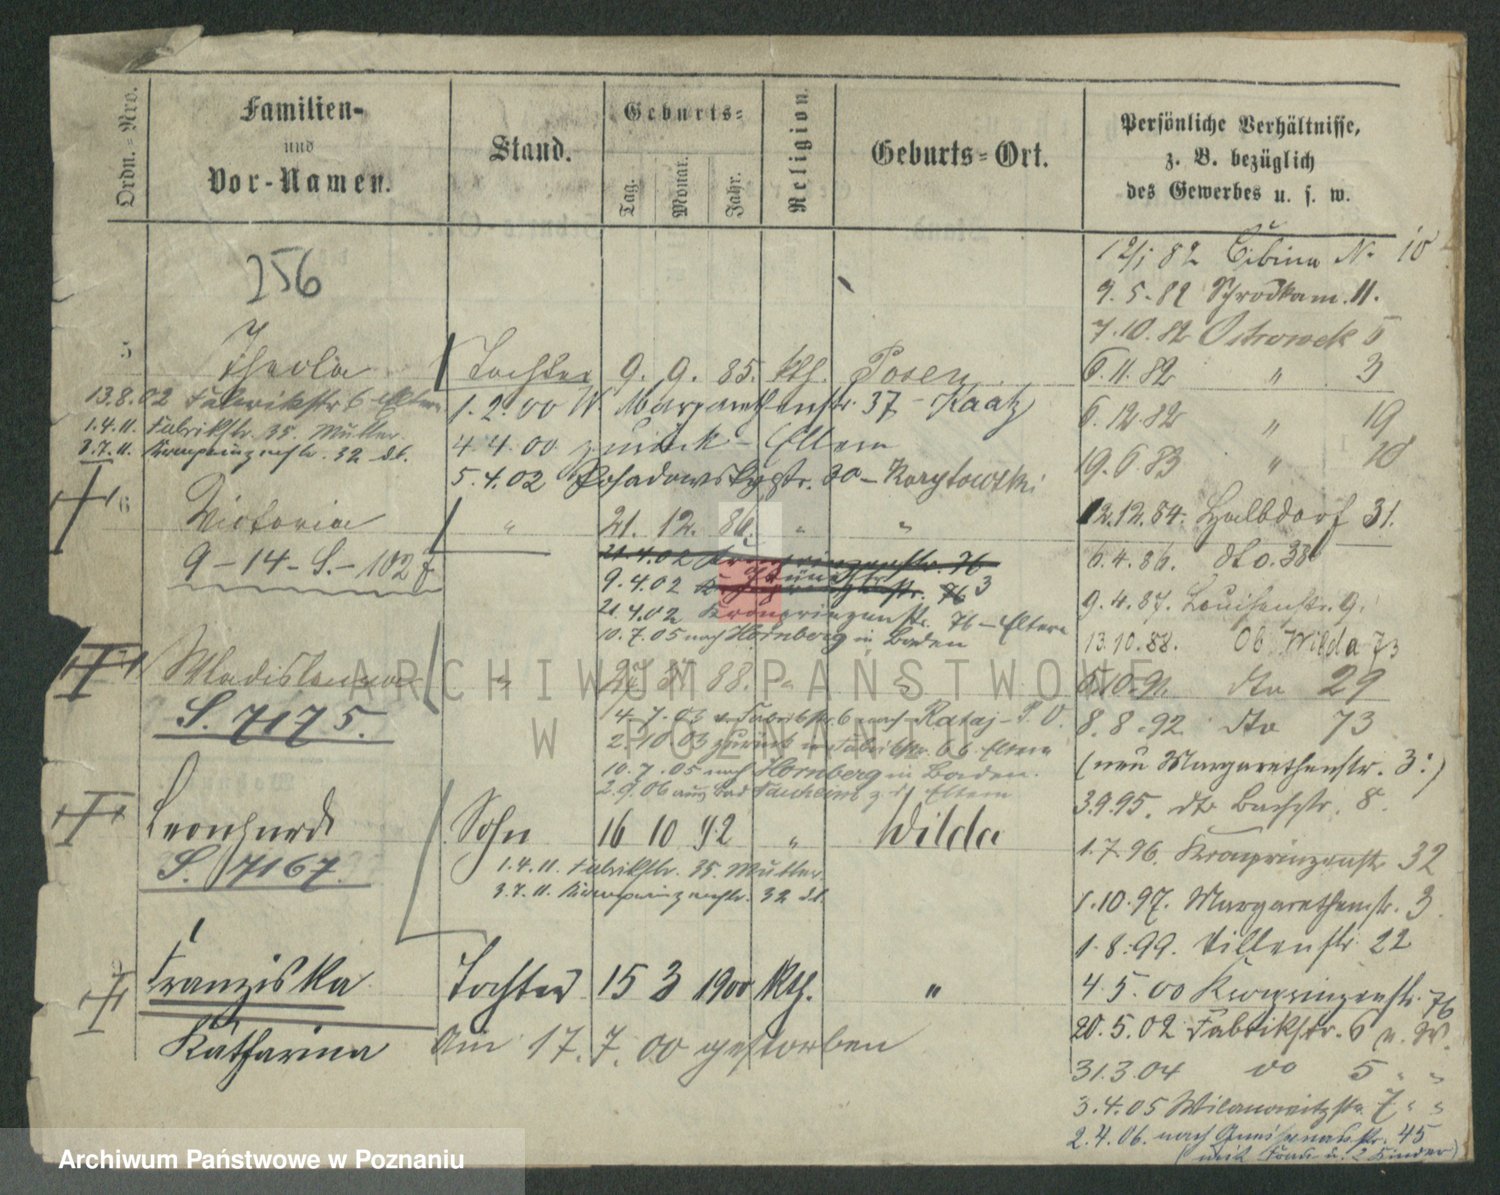 Ordn.-Nro.
Familien-
und
Vor-Namen.
Stand.
Geburts-
Tag.
Monat.
Jahr.
Religion.
Geburts-Ort.
Persönliche Verhältnisse,
z. B. bezüglich
des Gewerbes u. s. w.
256
5 Thecla Tochter 9. 9. 85. kth. Posen
13.8.02 Fabrikstr 6 Eltern
1.4.11. Fabrikstr. 35. Mutter.
3.7.11. Kronprinzenstr. 32 dt.
1.2.00 W. Margarethenstr. 37 - Kaatz
4 4.00 zurück - Eltern
5.4.02 Posadowskystr. 30 - Korytowski
6 Victoria " 21. 12. 86. " "
9-14-S.-102
21.4.02 Kronprinzenstr. 76
9.4.02 Kronprinzenstr. 76 3
21.4.02 Kronprinzenstr. 76 - Eltern
10.7.05 nach Hornberg in Baden
Wladislawa " 88. " "
S. 7175.
14.7.03 v. Fabrikstr. 6 nach Rataj - P. O.
2.10 03 zurück n Fabrikstr. 6 b. Eltern
10.7.05 nach Hornberg in Baden.
2.9.06 aus Bad z d Eltern
Leonhard Sohn 16 10 92 " Wilda
S. 7167.
1.4.11. Fabrikstr. 35. Mutter
3.7.11. Kronprinzenstr. 32 dt.
Franziska Tochter 15 3 1900 kth. "
Katharina am 17. 7. 00 gestorben
12/1 82 Cibina N. 10
9.5.82 Schrodkam. 11.
7.10.82 Ostrowek 5
6.11.82 " 3
6.12.82 " 19
19.6.83 " 10
12.12.84. Halbdorf 31.
6.4.86. dto. 38
9.4.87. Louisenstr. 9.
13.10.88. Ob. Wilda 73
6.10.91. dto 29
8.8.92 dto 73
(neu Margarethenstr. 3:)
3.9.95. dto Bachstr. 8.
1.7.96. Kronprinzenstr 32
1.10.97. Margarethenstr. 3.
1.8.99. Villenstr. 22
4.5.00 Kronprinzenstr. 76
20.5.02 Fabrikstr. 6 u. W.
31.3.04 do 5 " "
3.4.05 Wilamowitzstr. 7 " "
2.4.06. nach Gneisenaustr. 45
(mit Frau u. 2 Kinder)
ARCHIWUM PAŃSTWOWE
W POZNANIU
Archiwum Państwowe w Poznaniu